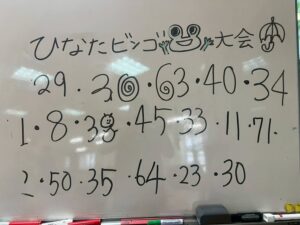 ひなたビンゴ大会
29・・63・40・34
1・8・・45・33・11・71・
・50・35・64・23・30